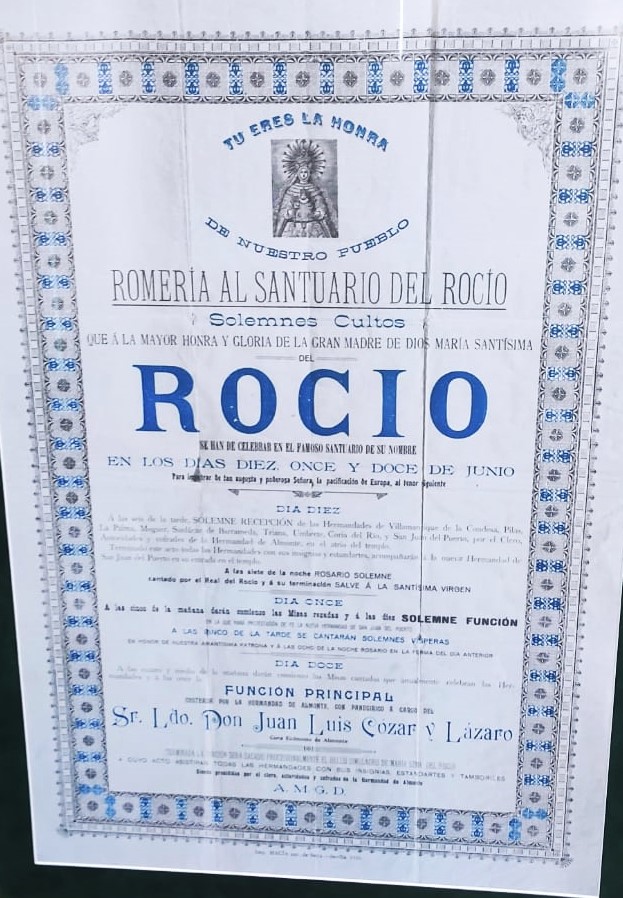 TU ERES LA HONRA
DE NUESTRO PUEBLO
ROMERÍA AL SANTUARIO DEL ROCÍO
Solemnes Cultos
QUE Á LA MAYOR HONRA Y GLORIA DE LA GRAN MADRE DE DIOS MARÍA SANTÍSIMA
DEL
ROCIO
SE HAN DE CELEBRAR EN EL FAMOSO SANTUARIO DE SU NOMBRE
EN LOS DÍAS DIEZ, ONCE Y DOCE DE JUNIO
Para de tan augusta y poderosa Señora, la pacificación de Europa, al tenor siguiente
DIA DIEZ
Á las seis de la tarde, SOLEMNE RECEPCIÓN de las Hermandades de Villamanrique de la Condesa, Pilas,
La Palma, Moguer, Sanlúcar de Barrameda, Triana, Umbrete, Coria del Río, y San Juan del Puerto, por el Clero,
Autoridades y cofrades de la Hermandad de Almonte, en el atrio del templo.
Terminado este acto todas las Hermandades con sus insignias y estandartes, acompañarán á la nueva Hermandad de
San Juan del Puerto en su entrada en el templo.
A las siete de la noche ROSARIO SOLEMNE
cantado por el Real del Rocío y á su terminación SALVE Á LA SANTÍSIMA VIRGEN
DIA ONCE
A las cinco de la mañana darán comienzo las Misas rezadas y á las diez SOLEMNE FUNCIÓN
A LAS CINCO DE LA TARDE SE CANTARÁN SOLEMNES VÍSPERAS
EN HONOR DE NUESTRA AMANTÍSIMA PATRONA Y Á LAS OCHO DE LA NOCHE ROSARIO EN LA FORMA DEL DIA ANTERIOR
DIA DOCE
A las cuatro y media de la mañana darán comienzo las Misas cantadas que anualmente celebran las Her-
mandades y á las once la
FUNCIÓN PRINCIPAL
COSTEADA POR LA HERMANDAD DE ALMONTE, CON PANEGÍRICO Á CARGO DEL
Sr. Ldo. Don Juan Luis Cózar y Lázaro
Cura Ecónomo de Almonte
A CUYO ACTO ASISTIRÁN TODAS LAS HERMANDADES CON SUS INSIGNIAS, ESTANDARTES Y TAMBORILES
Siendo presididas por el clero, autoridades y cofrades de la Hermandad de Almonte
A. M. G. D.